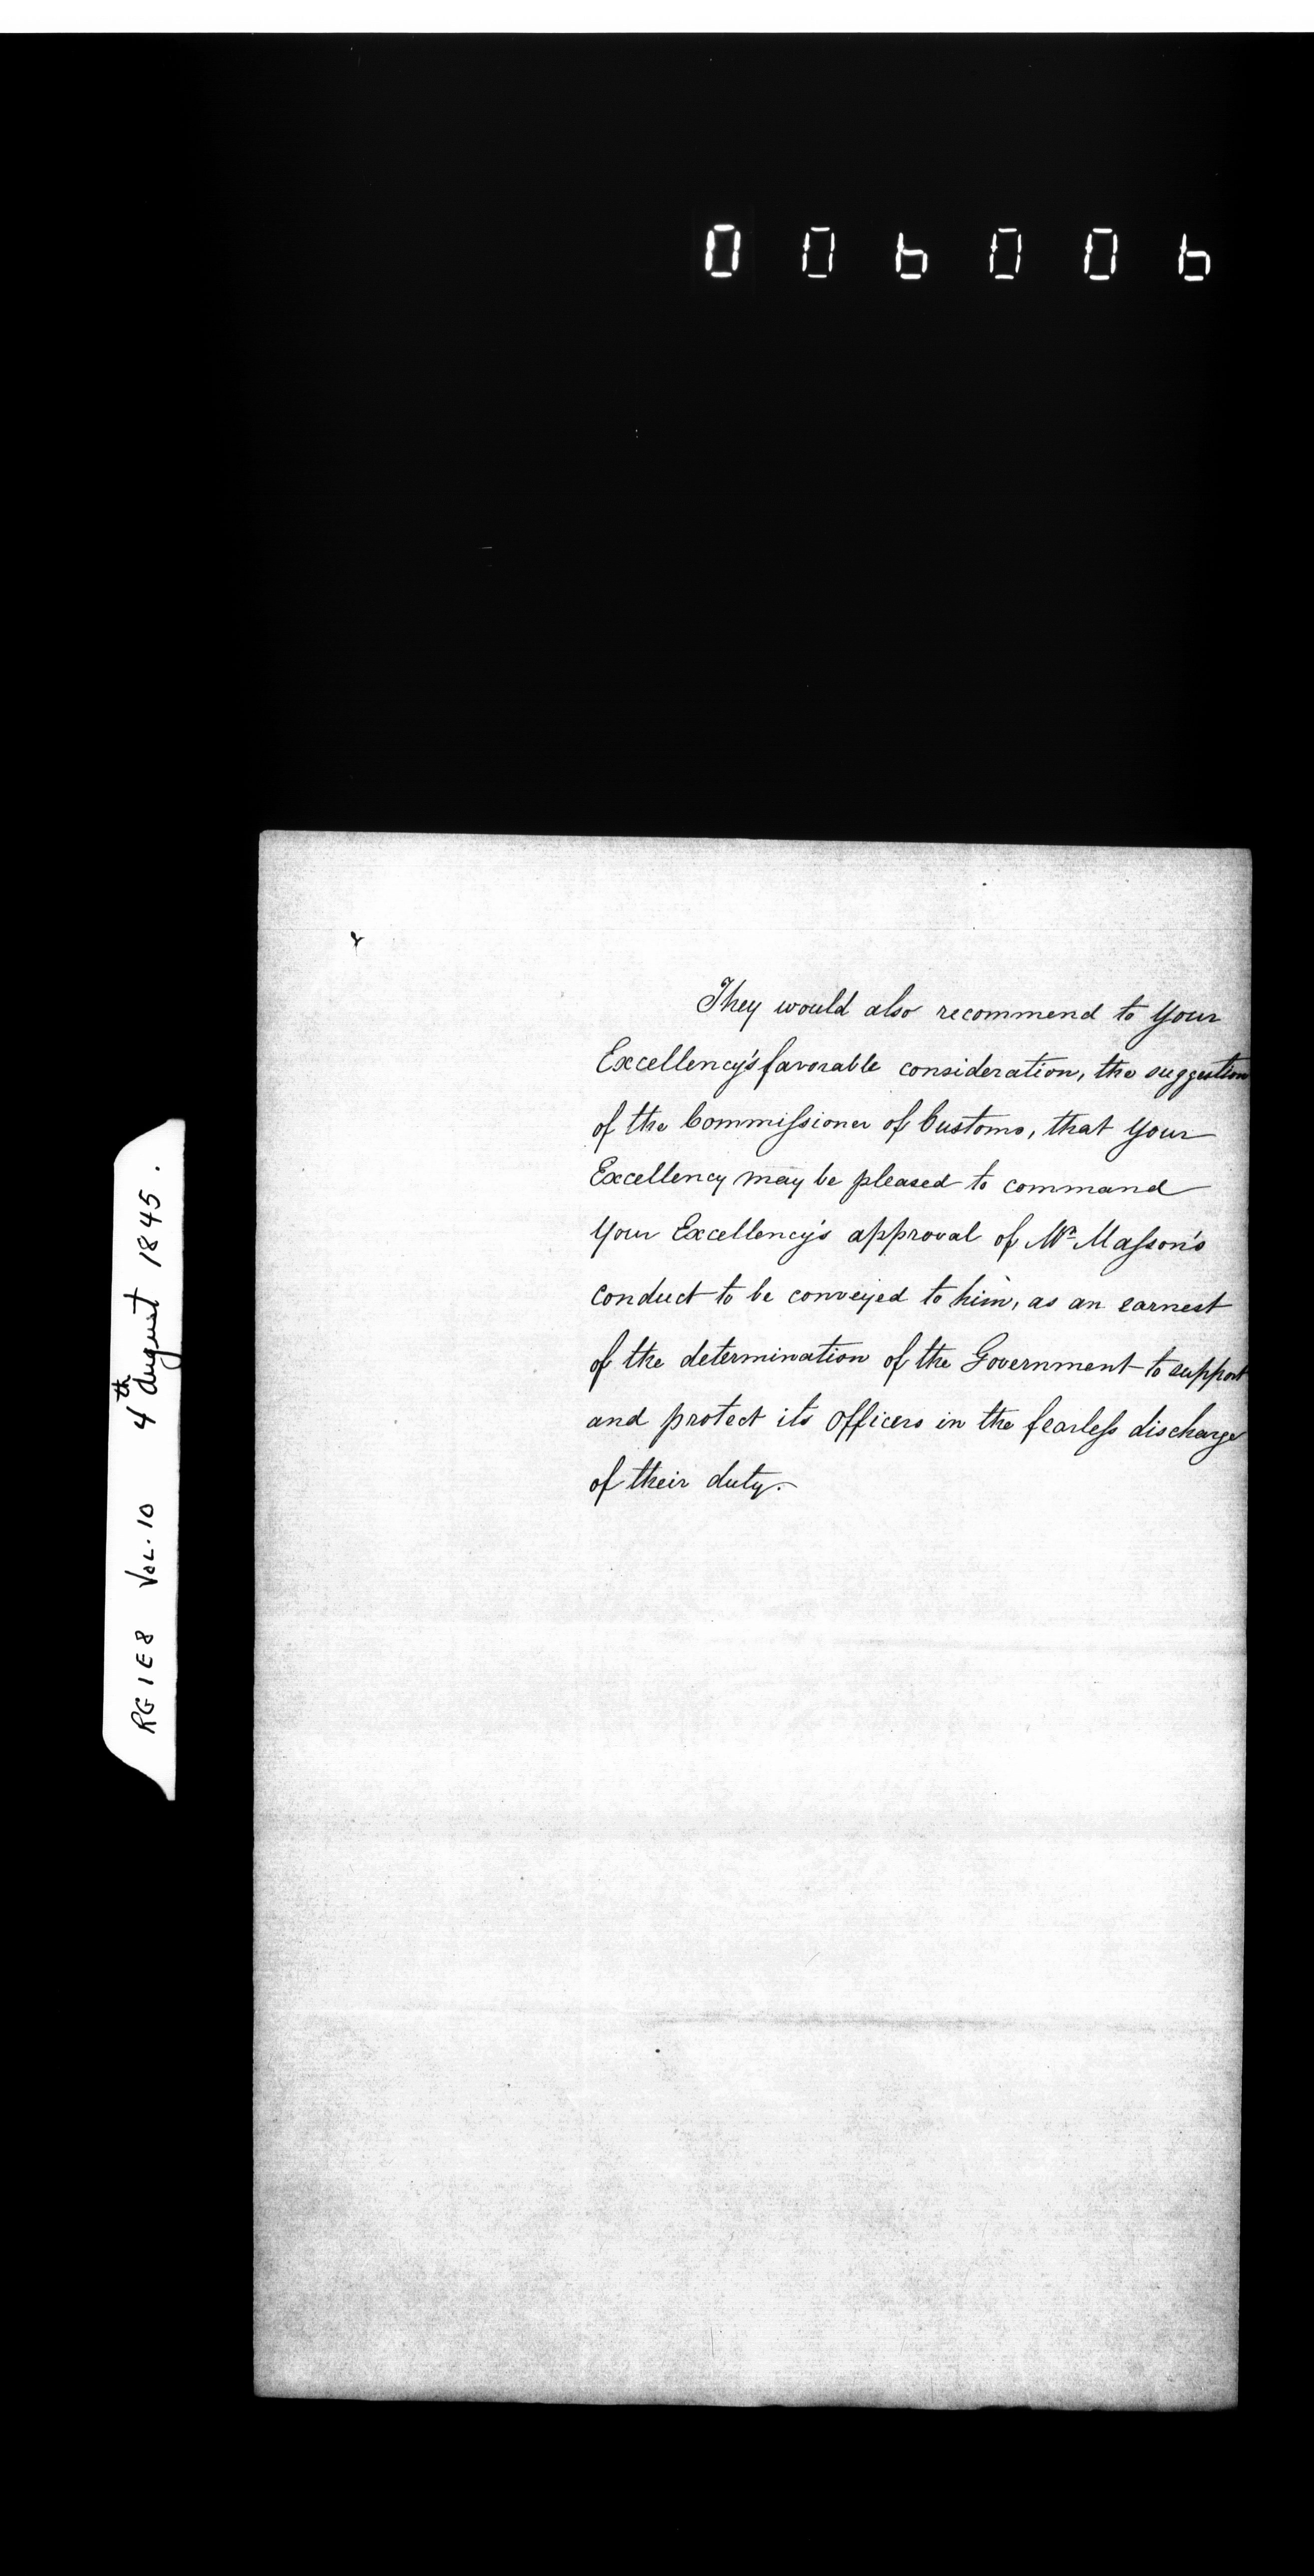 006006
They would also recommend to Your
Excellency's favorable consideration, the suggestion
of the Commissioner of Customs, that Your
Excellency may be pleased to command
Your Excellency's approval of Mr Masson's
conduct to be conveyed to him, as an earnest
of the determination of the Government to support
and protect its Officers in the fearless discharge
of their duty.
RG 1 E8 VOL. 10 4th August 1845.